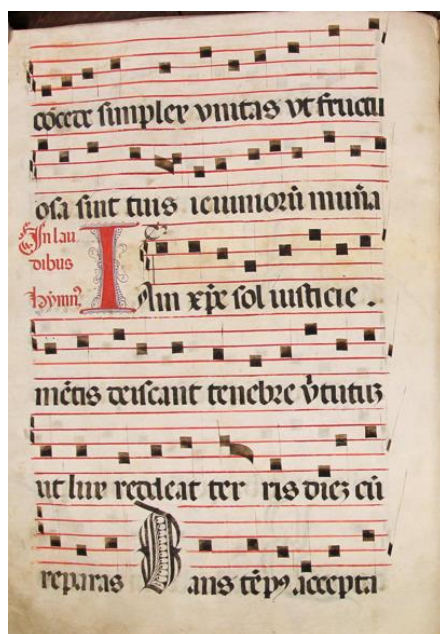 cōcede simplex vnitas vt fructu
osa sint tuis ieiuniorū mun̄a
In lau
dibus
hymn9
Iam xp̄e sol iusticie .
mētis deiscant tenebre v̄tutuz
ut lux redileat ter ris diez cū
reparas Dans tēp9 accepta